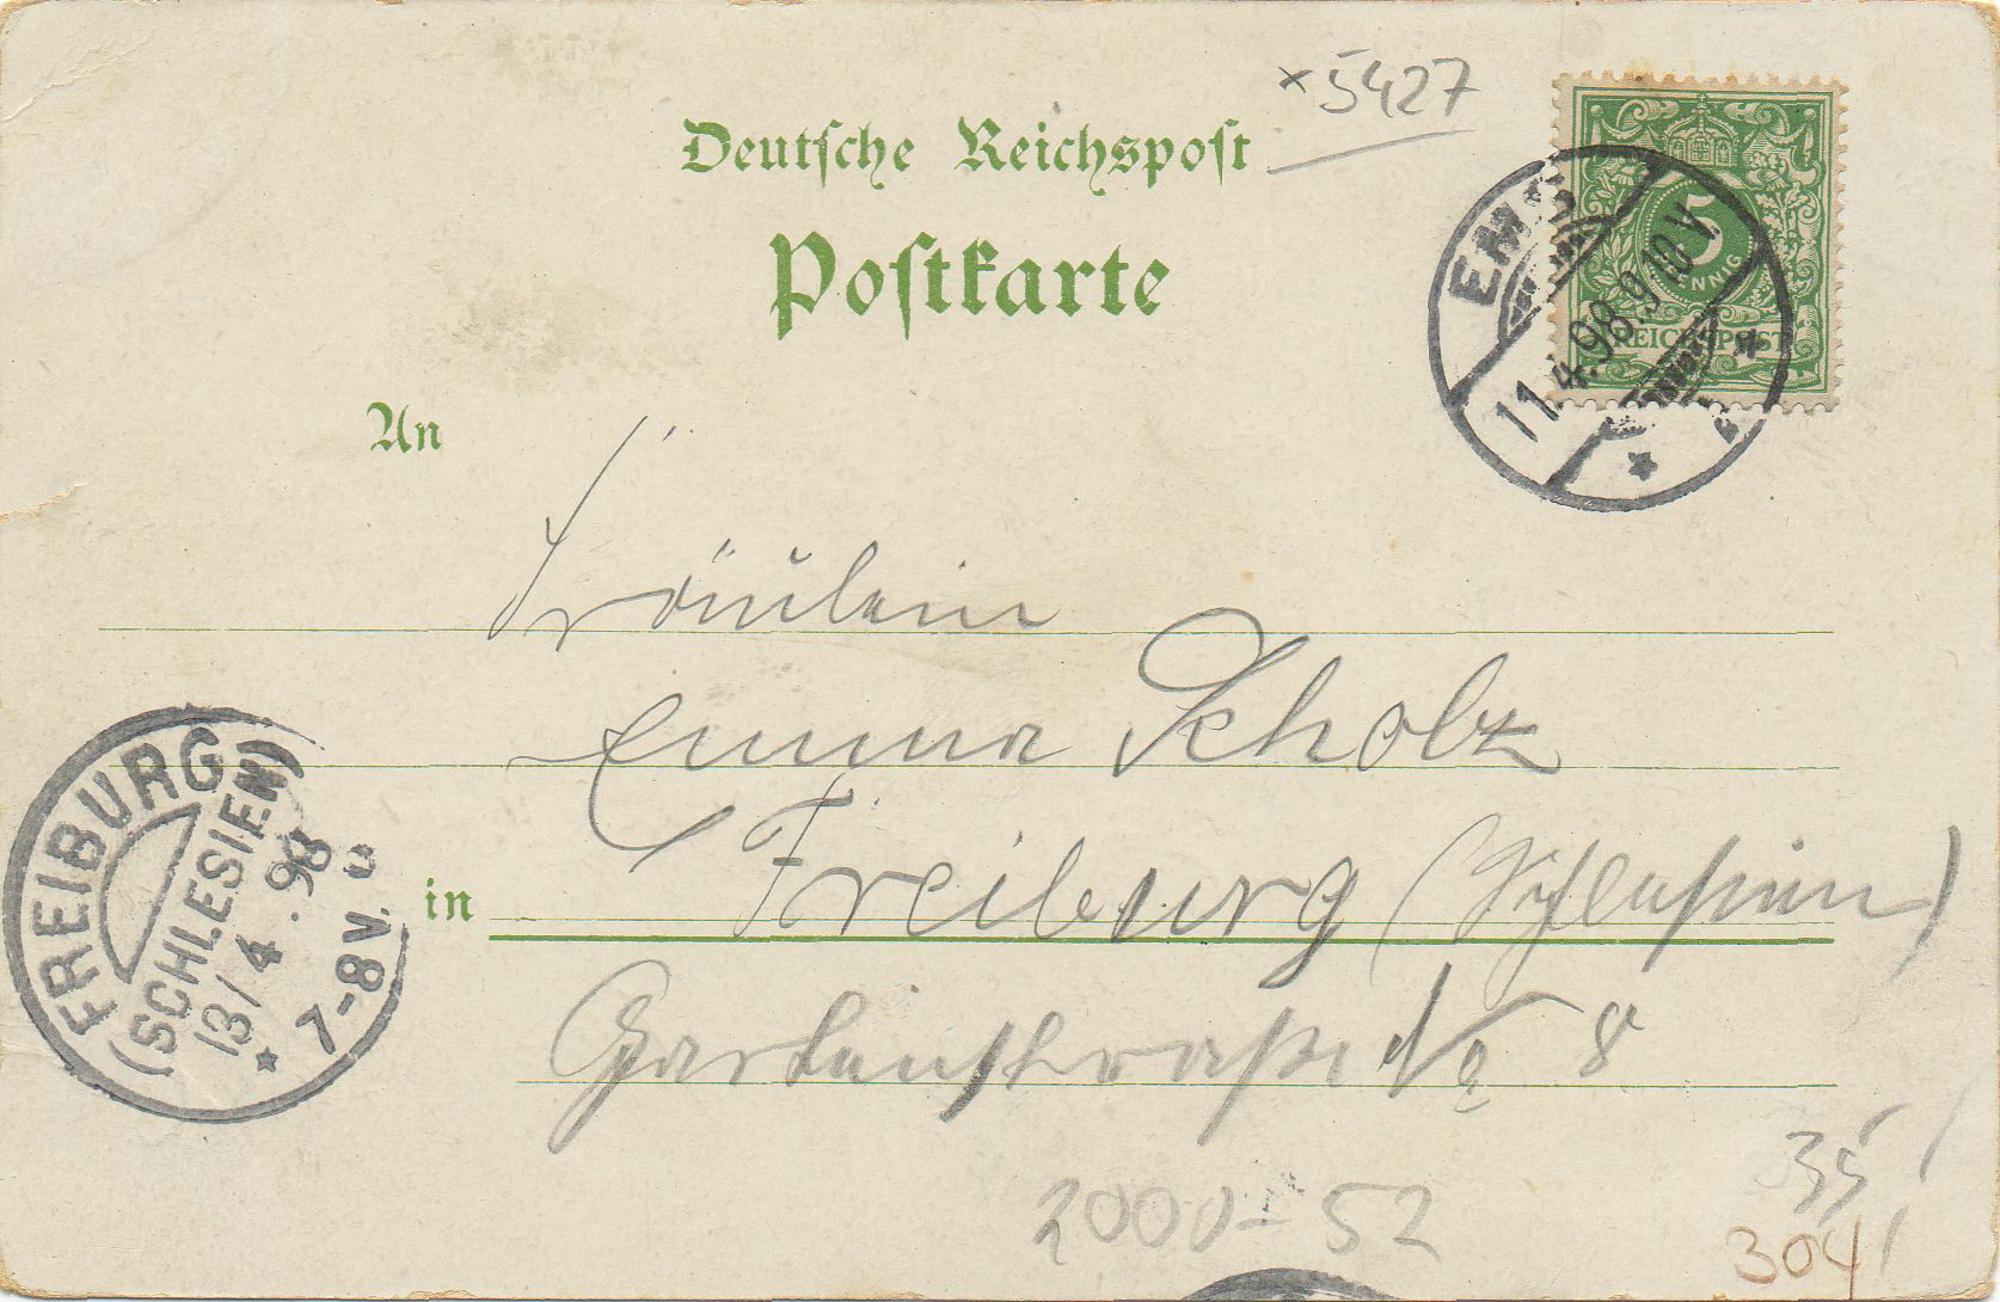 ×5427
Deutsche Reichspost
Postkarte
5
PFENNIG
REICHSPOST
EMS
11.4.98.9-10V.
An
Fräulein
Emma Scholz
in Freiburg (Schlesien)
Gartenstraße № 8
FREIBURG
(SCHLESIEN)
13/4.98
7-8V.
2000-52
35
304